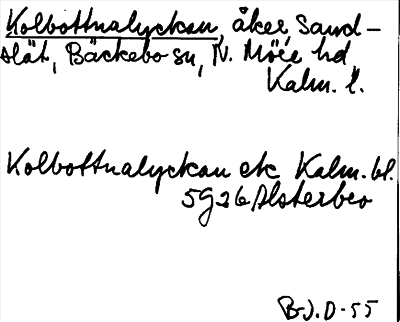 Kolbottnalyckan, åker, Sand-
slät, Bäckebo sn, N. Möre hd
Kalm. l.
Kolbottnalyckan ek Kalm. bl.
5g26 Alsterbro
B-J. D-55